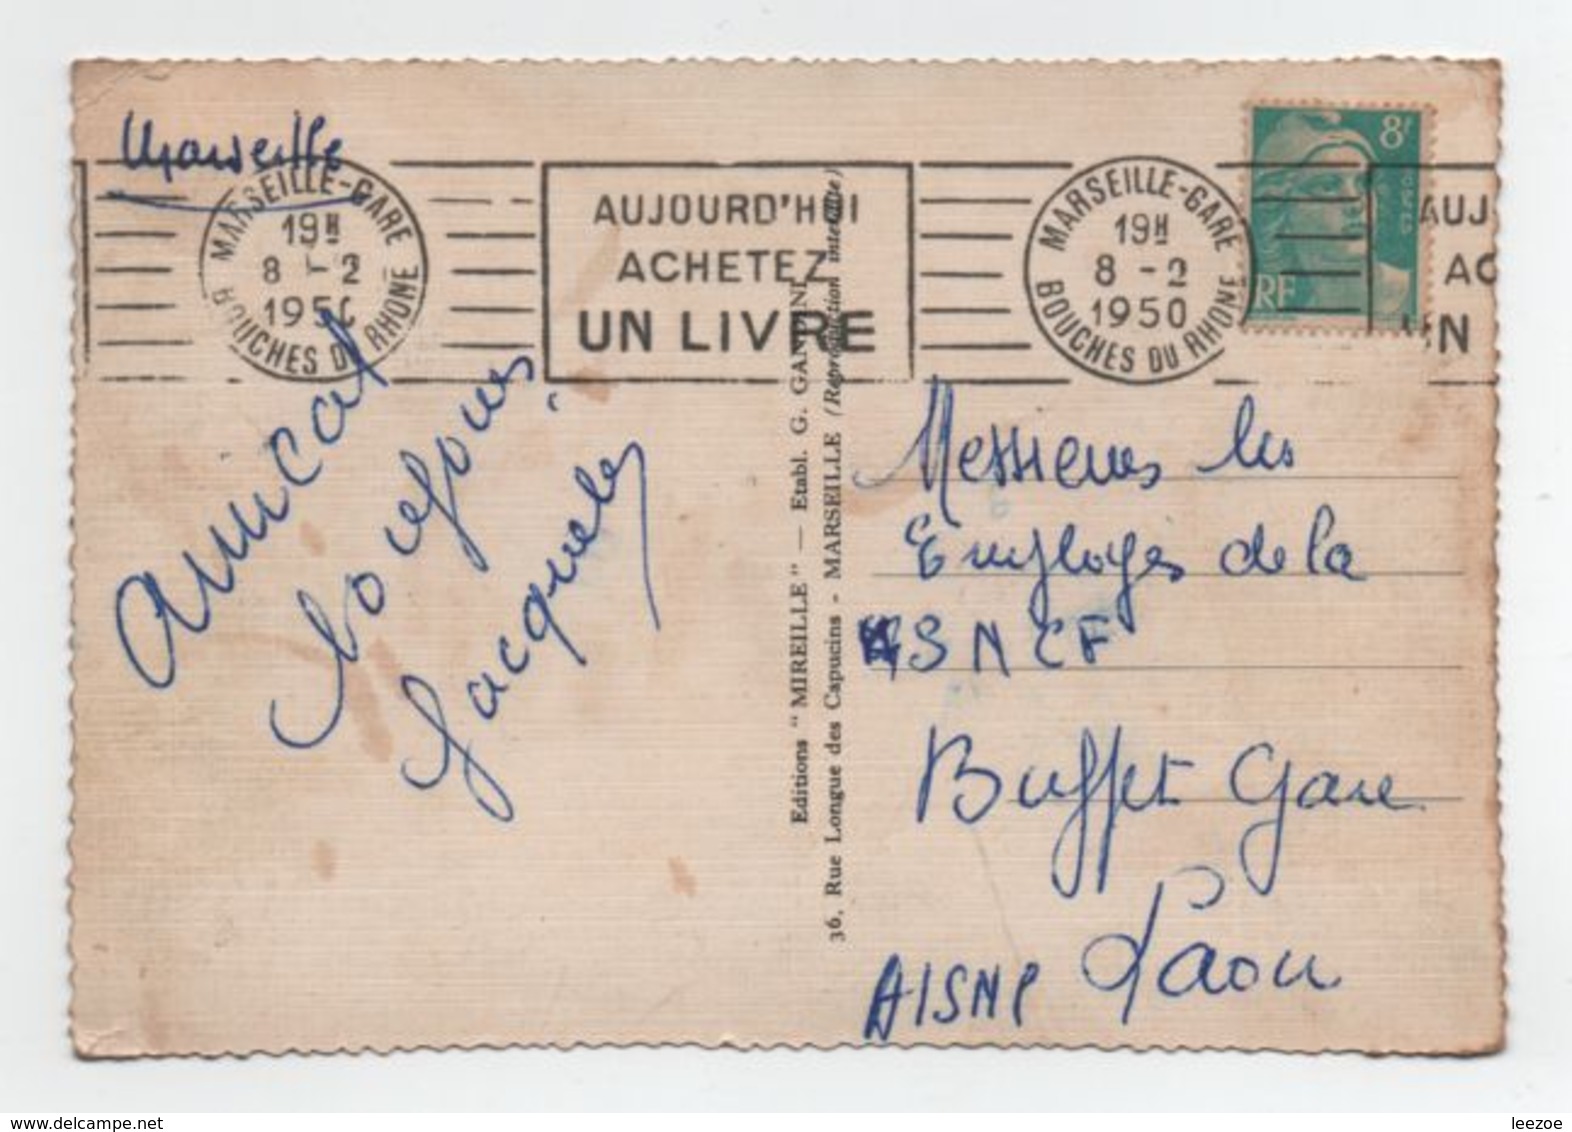 Marseille
MARSEILLE-GARE
19H
8 - 2
1950
BOUCHES DU RHONE
AUJOURD'HUI
ACHETEZ
UN LIVRE
MARSEILLE-GARE
19H
8 - 2
1950
BOUCHES DU RHONE
8f
RF
AUJ
AC
UN
Amical
Bonjour
Jacqueles
Editions "MIREILLE" — Etabl. G. GANDINI
36, Rue Longue des Capucins - MARSEILLE (Reproduction interdite)
Messieurs les
Employés de la
SNCF
Buffet Gare
Laon
AISNE
delcampe.net
leezoe